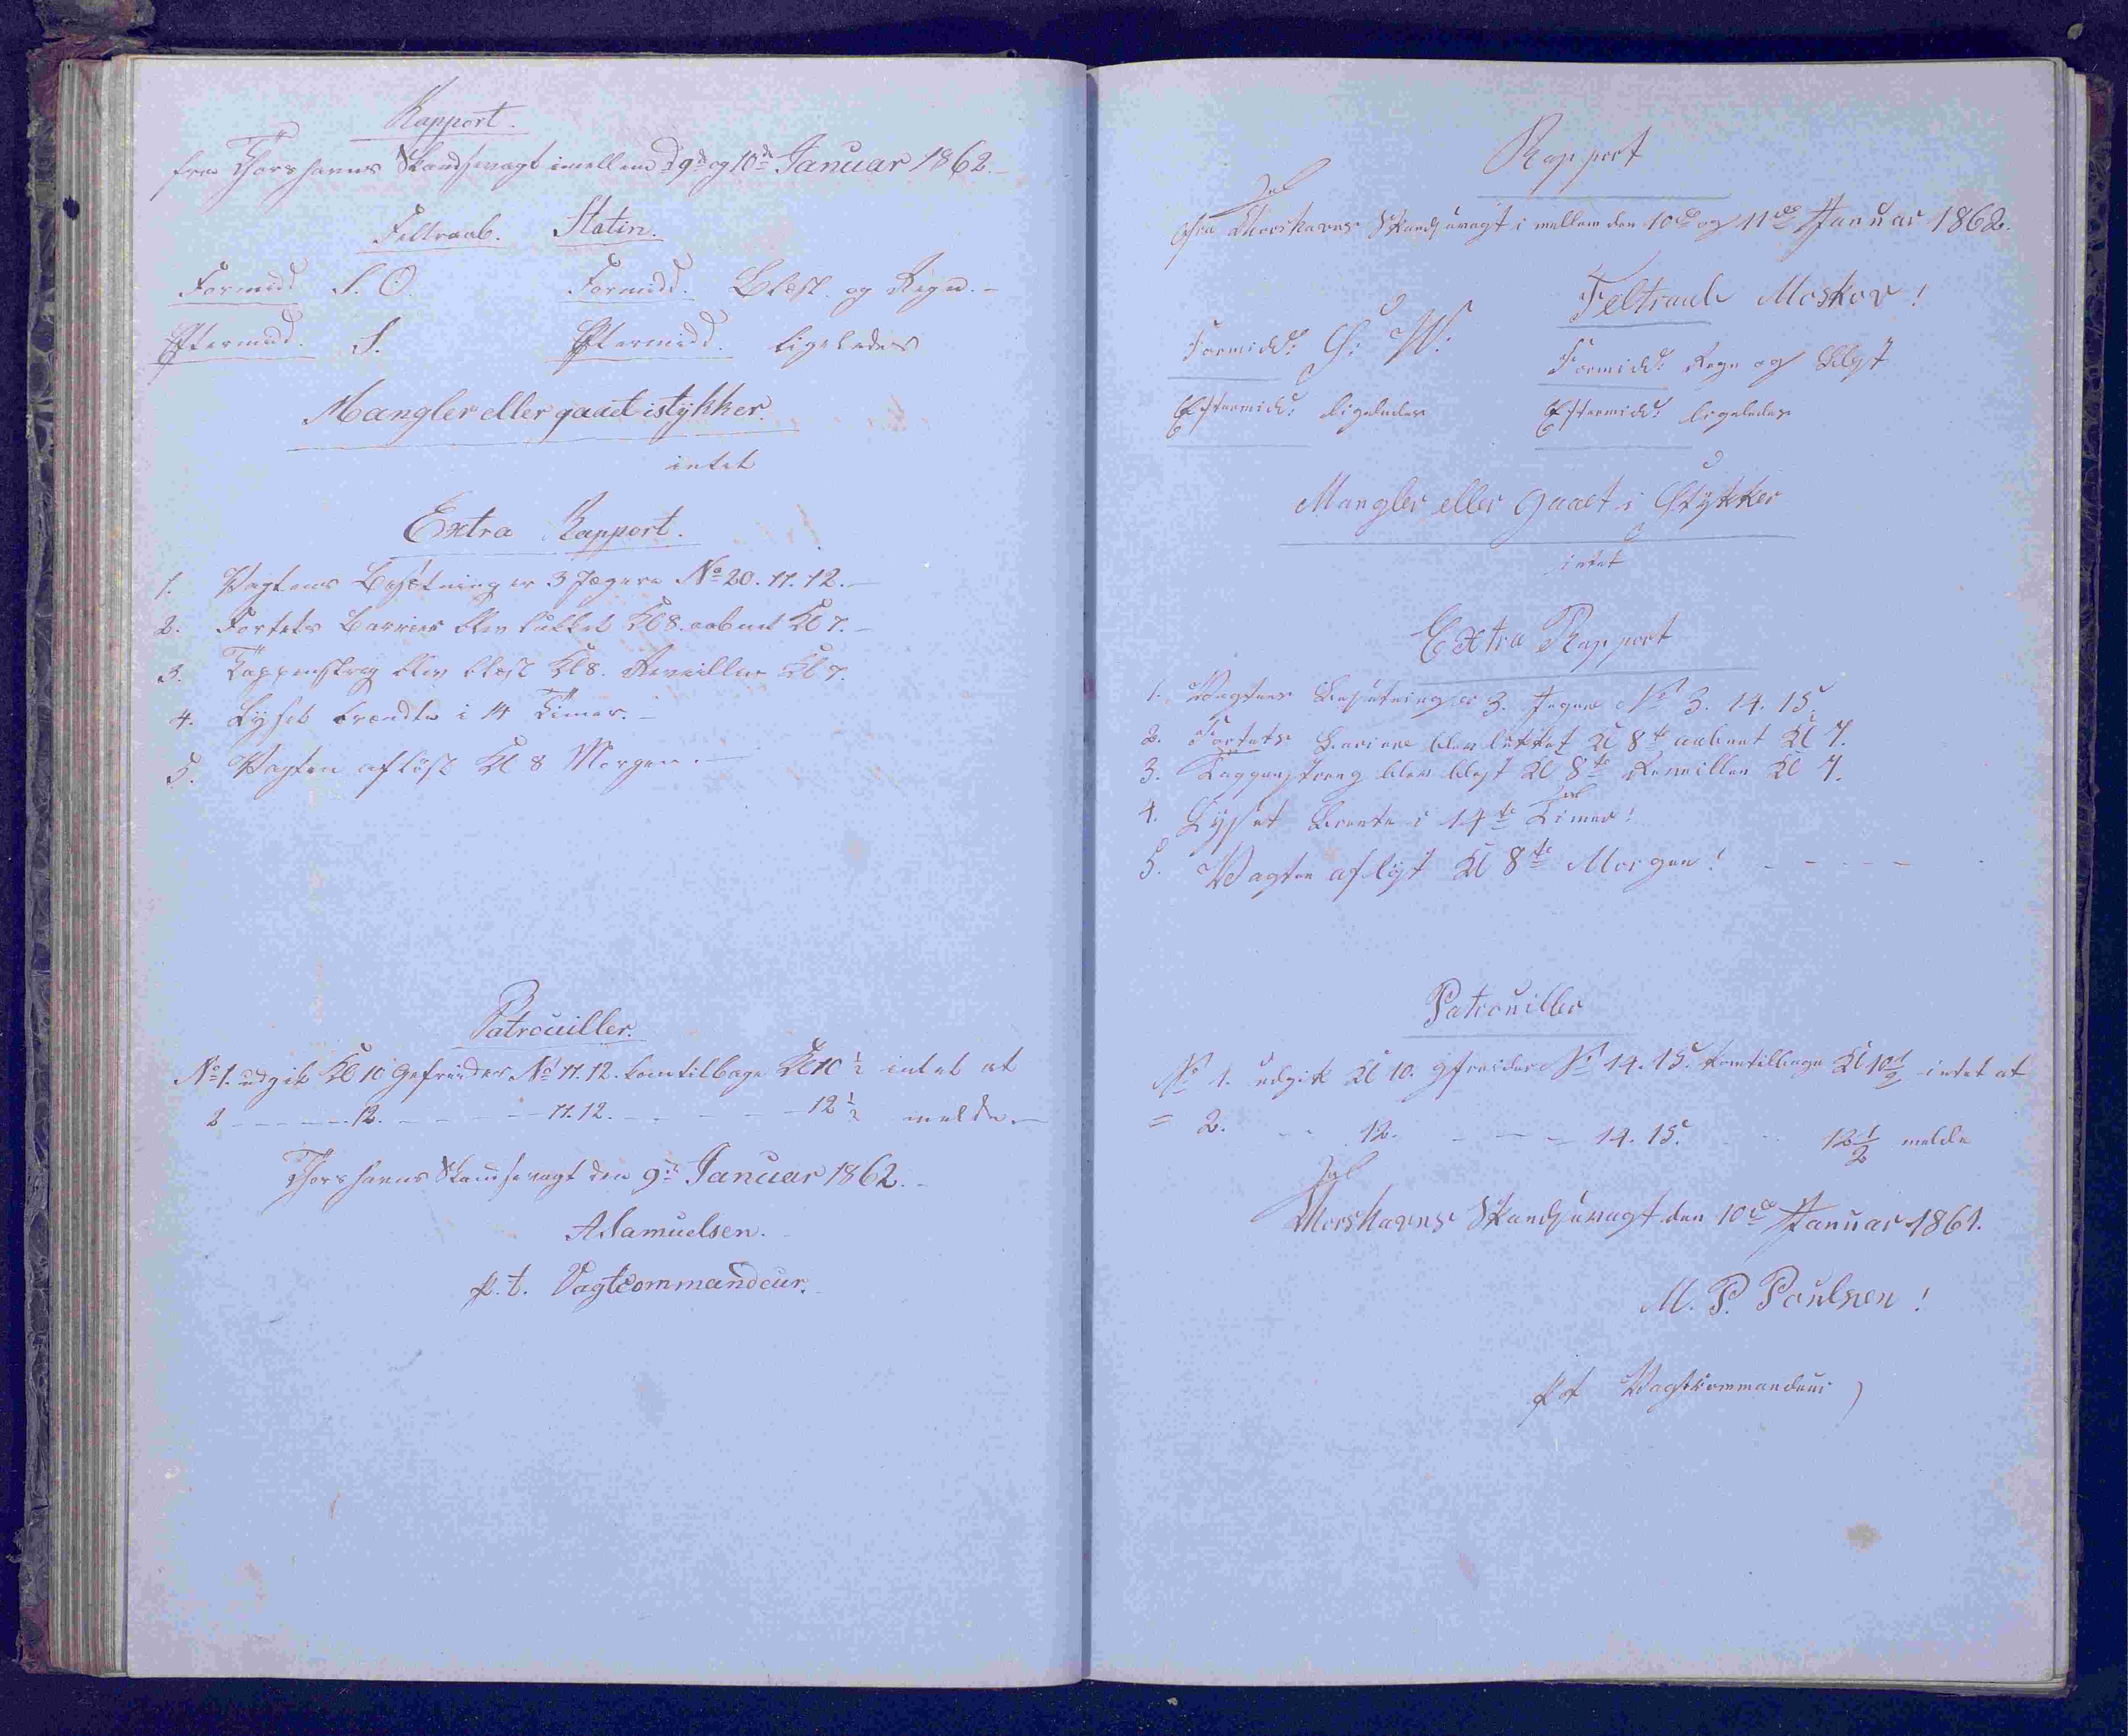 Rapport.
fra Thorshavns Skandsevagt imellem d 9de og 10de Januar 1862.
Feltraab. Statin.
Formidd S. O. Formidd. Blæst og Regn.
Eftermidd. S. Eftermidd. ligeledes
Mangler eller gaaet istykker.
intet
Extra Rapport.
1. Vagtens Besætning er 3 Jægere No 20. 11. 12.
2. Fortets Barriere blev lukket Kl 8. aabnet Kl 7.
3. Tappenstreg blev blæst Kl 8. Reveillen Kl 7.
4. Lyset brændte i 14 Timer.
5. Vagten aflöst Kl 8 Morgen.
Patrouiller.
No 1. udgik Kl 10 Gefreider No 11. 12. kom tilbage Kl 10 1/2 intet at
2 - - - - 12. - - - - 11. 12. - - - - 12 1/2 melde.
Thorshavns Skandsevagt den 9de Januar 1862.
A Samuelsen.
p. t. Vagtcommandeur.
Rapport
Fra Thorshavns Skandsevagt i mellem den 10de og 11de Januar 1862.
Feltraab Moskov!
Formidd: S: W: Formidd: Regn og Blest
Eftermidd: ligeledes Eftermidd: ligeledes
Mangler eller gaaet i Stykker
intet
Extra Rapport
1. Vagtens Besetning er 3. Jegere No 3. 14. 15.
2. Fortets Bariere blev lukket Kl 8te aabnet Kl 7.
3. Tappenstreg blev blest Kl 8te Reveillen Kl 7.
4. Lyset Brente i 14te Timer!
5. Vagten aflöst Kl 8te Morgen! - - - - -
Patrouiller
No 1. udgik Kl 10. gefreider No 14. 15. kom tilbage Kl 10 1/2 intet at
= 2. - - 12. - - - - 14. 15. - - 12 1/2 melde
Thorshavns Skandsevagt den 10de Januar 1861.
M. P. Poulsen!
p t Vagtkommandeur